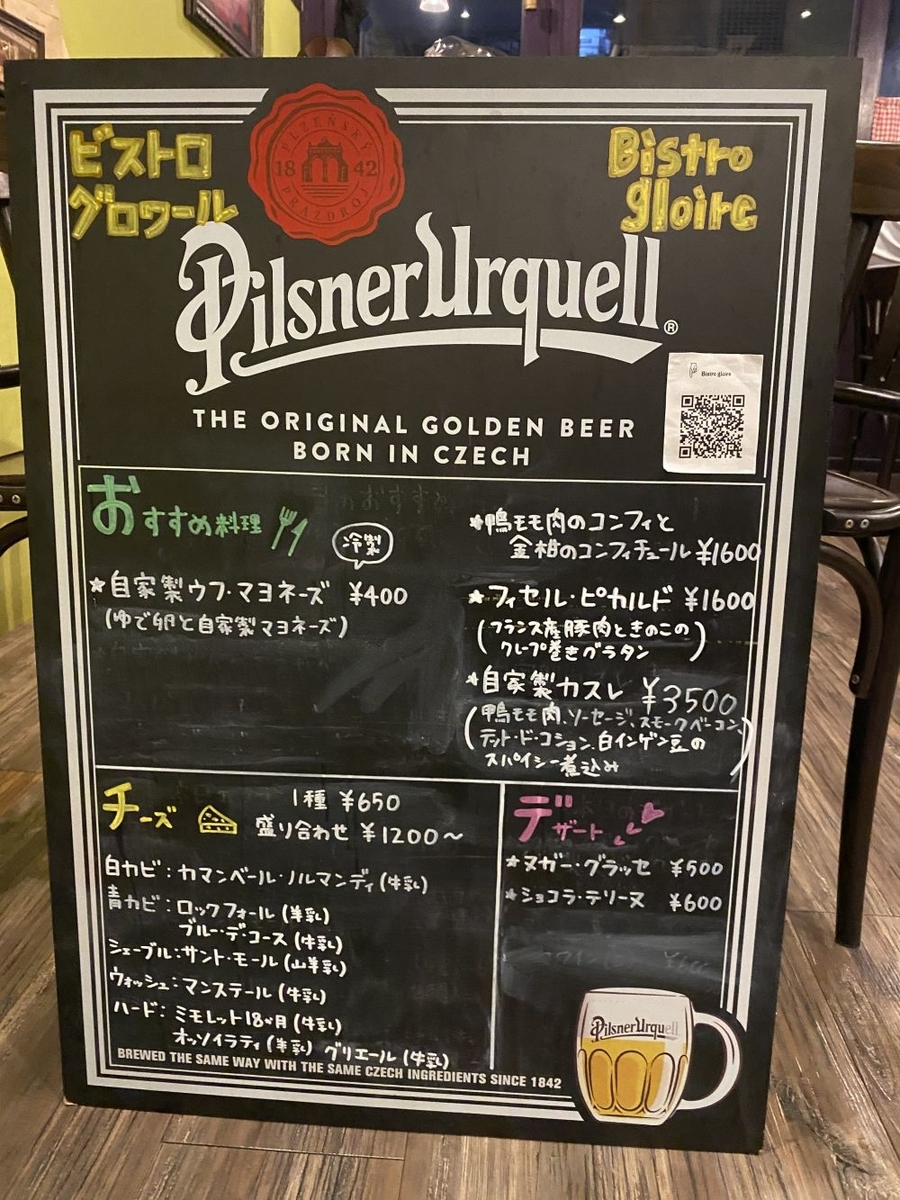 ビストロ
グロワール
Bistro
gloire
PLZEŇSKÝ
18 42
PRAZDROJ
Pilsner Urquell®
Bistro gloire
THE ORIGINAL GOLDEN BEER
BORN IN CZECH
おすすめ料理
冷製
★自家製ウフ・マヨネーズ ¥400
(ゆで卵と自家製マヨネーズ)
★鴨モモ肉のコンフィと
金柑のコンフィチュール ¥1600
★フィセル・ピカルド ¥1600
(フランス産豚肉ときのこの
クレープ巻きグラタン)
★自家製カスレ ¥3500
(鴨モモ肉、ソーセージ、スモークベーコン、
テット・ド・コション、白インゲン豆の
スパイシー煮込み)
チーズ
1種 ¥650
盛り合わせ ¥1200〜
白カビ:カマンベール・ノルマンディ(牛乳)
青カビ:ロックフォール(羊乳)
ブルー・デ・コース(牛乳)
シェーブル:サント・モール(山羊乳)
ウォッシュ:マンステール(牛乳)
ハード:ミモレット18ヶ月(牛乳)
オッソイラティ(羊乳) グリエール(牛乳)
デザート
★ヌガー・グラッセ ¥500
★ショコラ・テリーヌ ¥600
Pilsner Urquell
BREWED THE SAME WAY WITH THE SAME CZECH INGREDIENTS SINCE 1842